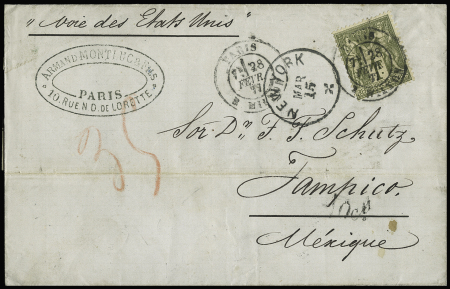 "Voie des Etats Unis"
ARMAND MONTLUC & EMS
PARIS
10, RUE N.D. DE LORETTE
PARIS
28
FEVR
77
NEW YORK
MAR
15
28
77
35
Sor. Dn. F. J. Schutz,
Tampico.
Méxique